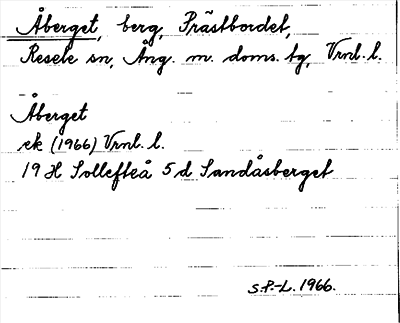 Åberget, berg, Prästbordet,
Resele sn, Ång. m. doms. tg, Vrnl. l.
Åberget
ek (1966) Vrnl. l.
19 H Sollefteå 5 d Sandåsberget
S.P.-L. 1966.